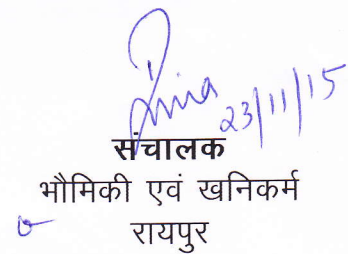 23/11/15
संचालक
भौमिकी एवं खनिकर्म
रायपुर